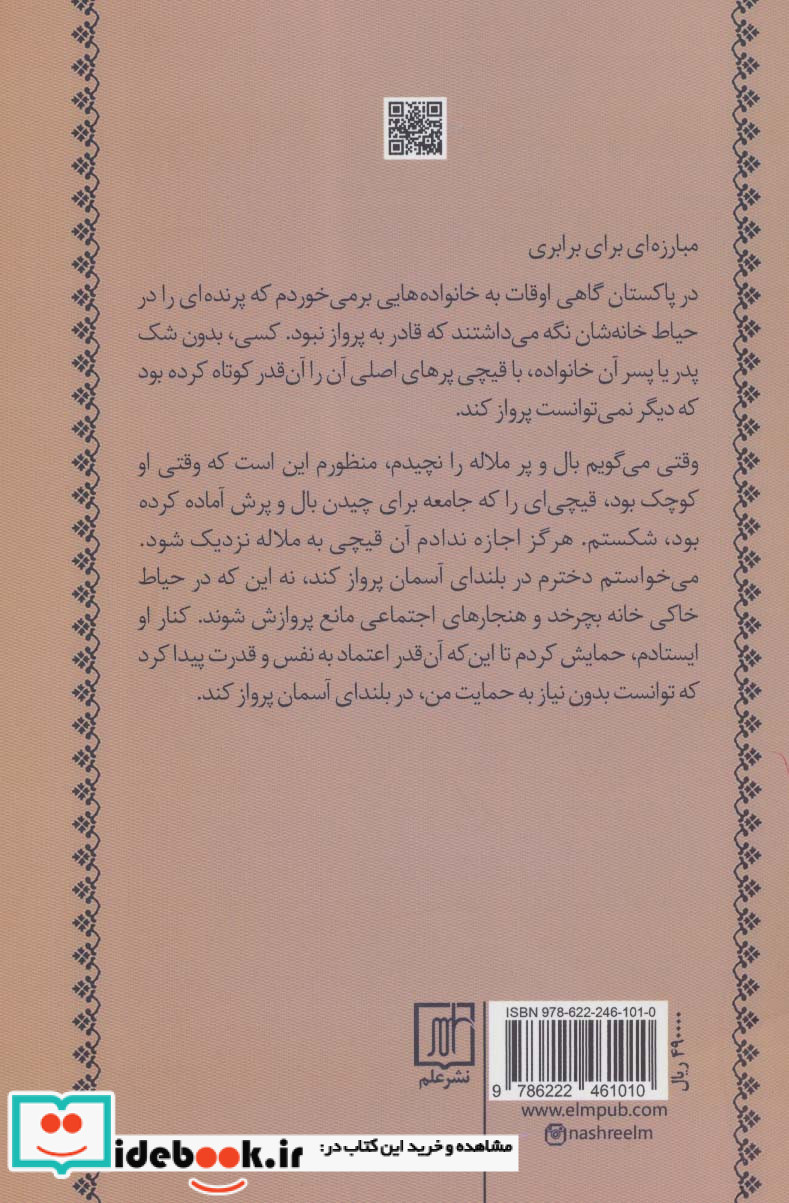 مبارزه‌ای برای برابری
در پاکستان گاهی اوقات به خانواده‌هایی برمی‌خوردم که پرنده‌ای را در
حیاط خانه‌شان نگه می‌داشتند که قادر به پرواز نبود. کسی، بدون شک
پدر یا پسر آن خانواده، با قیچی پرهای اصلی آن را آن‌قدر کوتاه کرده بود
که دیگر نمی‌توانست پرواز کند.
وقتی می‌گویم بال و پر ملاله را نچیدم، منظورم این است که وقتی او
کوچک بود، قیچی‌ای را که جامعه برای چیدن بال و پرش آماده کرده
بود، شکستم. هرگز اجازه ندادم آن قیچی به ملاله نزدیک شود.
می‌خواستم دخترم در بلندای آسمان پرواز کند، نه این که در حیاط
خاکی خانه بچرخد و هنجارهای اجتماعی مانع پروازش شوند. کنار او
ایستادم، حمایش کردم تا این‌که آن‌قدر اعتماد به نفس و قدرت پیدا کرد
که توانست بدون نیاز به حمایت من، در بلندای آسمان پرواز کند.
ISBN 978-622-246-101-0
9 786222 461010
۴۹۰۰۰۰ ریال
نشر علم
www.elmpub.com
nashreelm
مشاهده و خرید این کتاب در:
idebook.ir